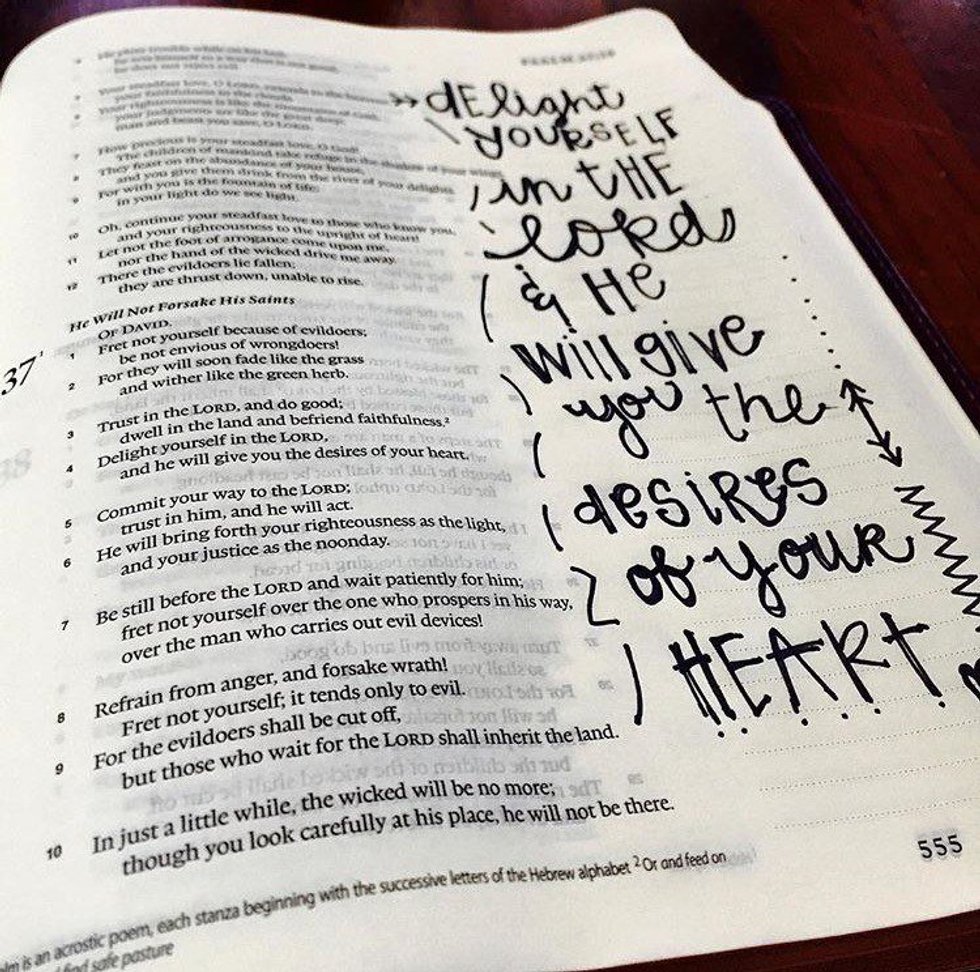 Your steadfast love, O LORD, extends to the heavens,
your faithfulness to the clouds.
Your righteousness is like the mountains of God;
your judgments are like the great deep;
man and beast you save, O LORD.
7 How precious is your steadfast love, O God!
The children of mankind take refuge in the shadow of your wings.
8 They feast on the abundance of your house,
and you give them drink from the river of your delights.
9 For with you is the fountain of life;
in your light do we see light.
10 Oh, continue your steadfast love to those who know you,
and your righteousness to the upright of heart!
11 Let not the foot of arrogance come upon me,
nor the hand of the wicked drive me away.
12 There the evildoers lie fallen;
they are thrust down, unable to rise.
He Will Not Forsake His Saints
OF DAVID.
37 1
1 Fret not yourself because of evildoers;
be not envious of wrongdoers!
2 For they will soon fade like the grass
and wither like the green herb.
3 Trust in the LORD, and do good;
dwell in the land and befriend faithfulness.2
4 Delight yourself in the LORD,
and he will give you the desires of your heart.
5 Commit your way to the LORD;
trust in him, and he will act.
6 He will bring forth your righteousness as the light,
and your justice as the noonday.
7 Be still before the LORD and wait patiently for him;
fret not yourself over the one who prospers in his way,
over the man who carries out evil devices!
8 Refrain from anger, and forsake wrath!
Fret not yourself; it tends only to evil.
9 For the evildoers shall be cut off,
but those who wait for the LORD shall inherit the land.
10 In just a little while, the wicked will be no more;
though you look carefully at his place, he will not be there.
is an acrostic poem, each stanza beginning with the successive letters of the Hebrew alphabet 2 Or and feed on
find safe pasture
555
dElight
YOURSELF
in tHE
lord
& He
will give
you the
desiRes
of youR
HEARt